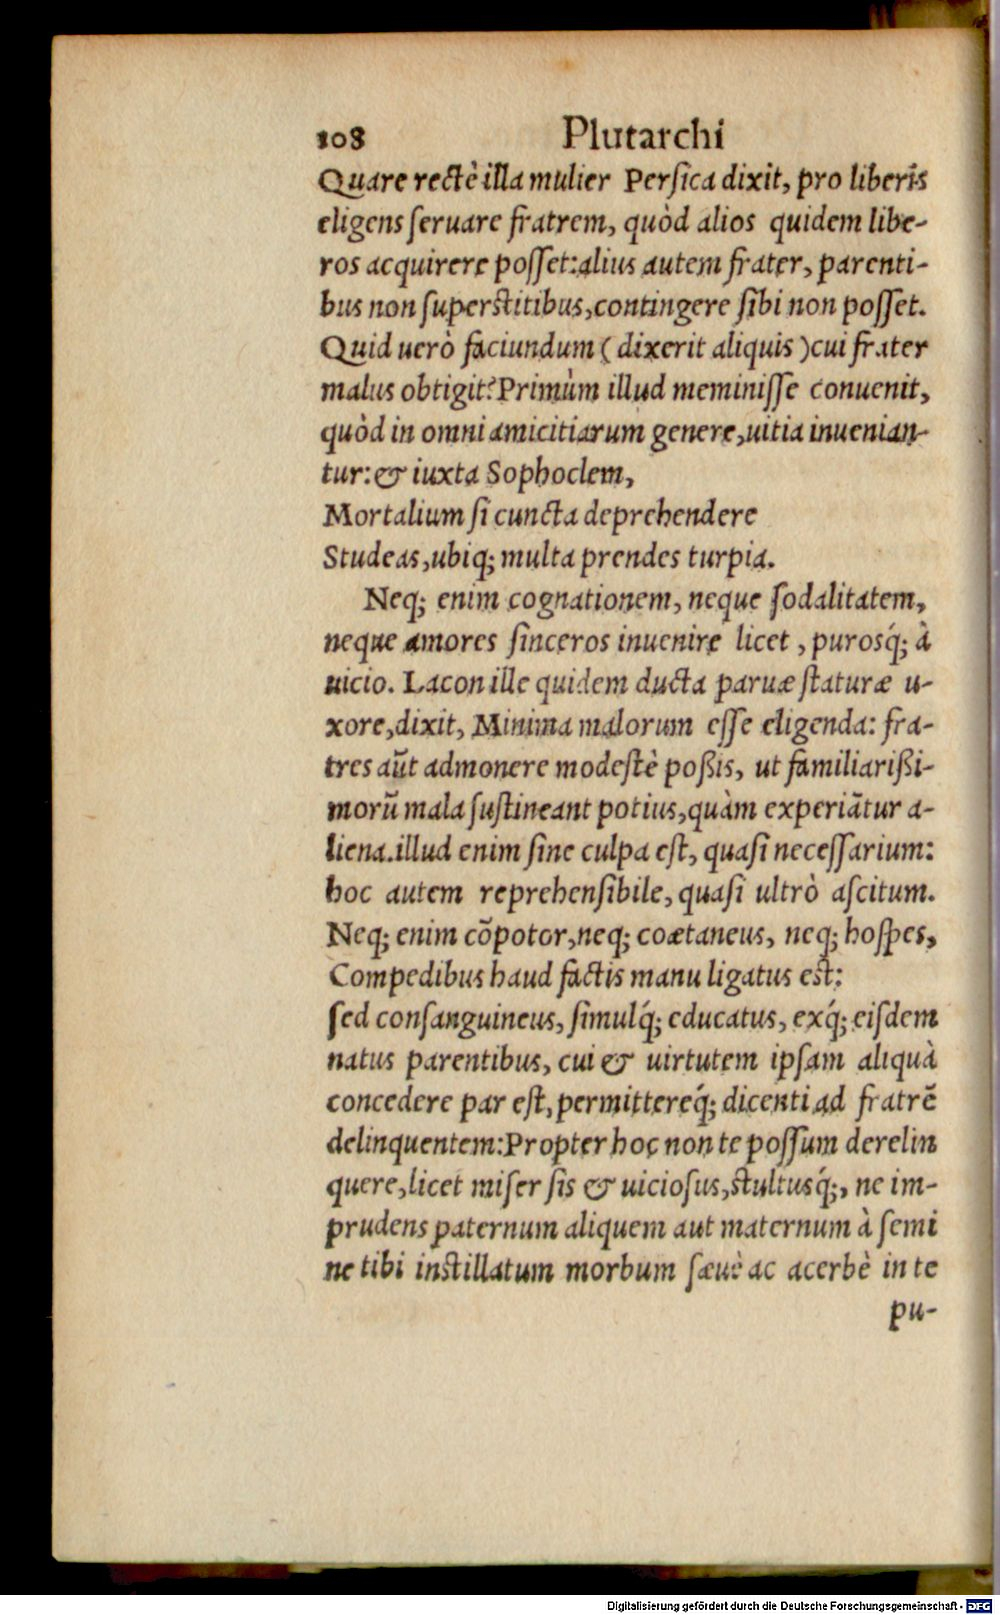 108 Plutarchi
Quare rectè illa mulier Persica dixit, pro liberis
eligens seruare fratrem, quòd alios quidem libe-
ros acquirere posset: alius autem frater, parenti-
bus non superstitibus, contingere sibi non posset.
Quid uerò faciundum (dixerit aliquis) cui frater
malus obtigit? Primùm illud meminisse conuenit,
quòd in omni amicitiarum genere, uitia inuenian-
tur: & iuxta Sophoclem,
Mortalium si cuncta deprehendere
Studeas, ubiq; multa prendes turpia.
Neq; enim cognationem, neque sodalitatem,
neque amores sinceros inuenire licet, purosq́; à
uicio. Lacon ille quidem ducta paruæ staturæ u-
xore, dixit, Minima malorum esse eligenda: fra-
tres aũt admonere modestè poßis, ut familiarißi-
morũ mala sustineant potius, quàm experiãtur a-
liena. illud enim sine culpa est, quasi necessarium:
hoc autem reprehensibile, quasi ultrò ascitum.
Neq; enim cõpotor, neq; coætaneus, neq; hospes,
Compedibus haud factis manu ligatus est:
sed consanguineus, simulq́; educatus, exq́; eisdem
natus parentibus, cui & uirtutem ipsam aliquà
concedere par est, permittereq́; dicenti ad fratrẽ
delinquentem: Propter hoc non te possum derelin
quere, licet miser sis & uiciosus, stultusq́;, ne im-
prudens paternum aliquem aut maternum à semi
ne tibi instillatum morbum sæuè ac acerbè in te
pu-
Digitalisierung gefördert durch die Deutsche Forschungsgemeinschaft - DFG